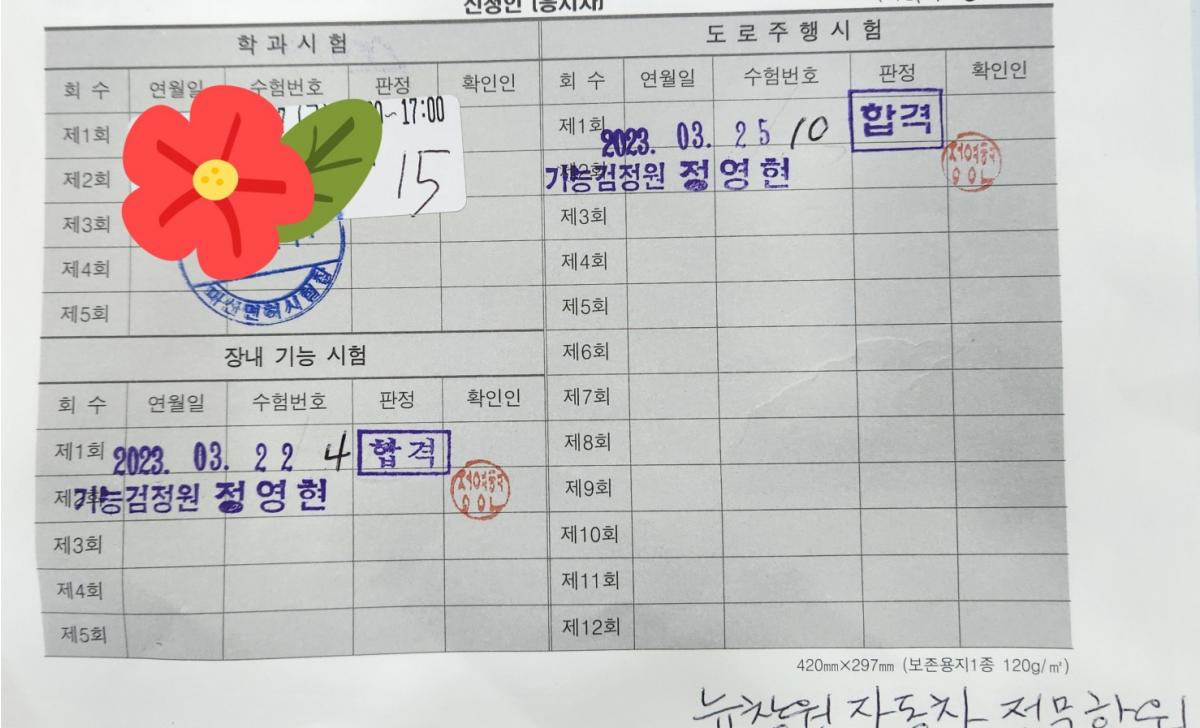 신청인 (응시자)
학과시험
회 수 연월일 수험번호 판정 확인인
제1회 ~17:00
제2회 15
제3회
제4회
제5회
마산면허시험장
장내 기능 시험
회 수 연월일 수험번호 판정 확인인
제1회 2023. 03. 22 4 합격
제2회 기능검정원 정영현
제3회
제4회
제5회
도로주행시험
회 수 연월일 수험번호 판정 확인인
제1회 2023. 03. 25 10 합격
제2회 기능검정원 정영현
제3회
제4회
제5회
제6회
제7회
제8회
제9회
제10회
제11회
제12회
420㎜×297㎜ (보존용지1종 120g/㎡)
뉴창원 자동차 전문학원